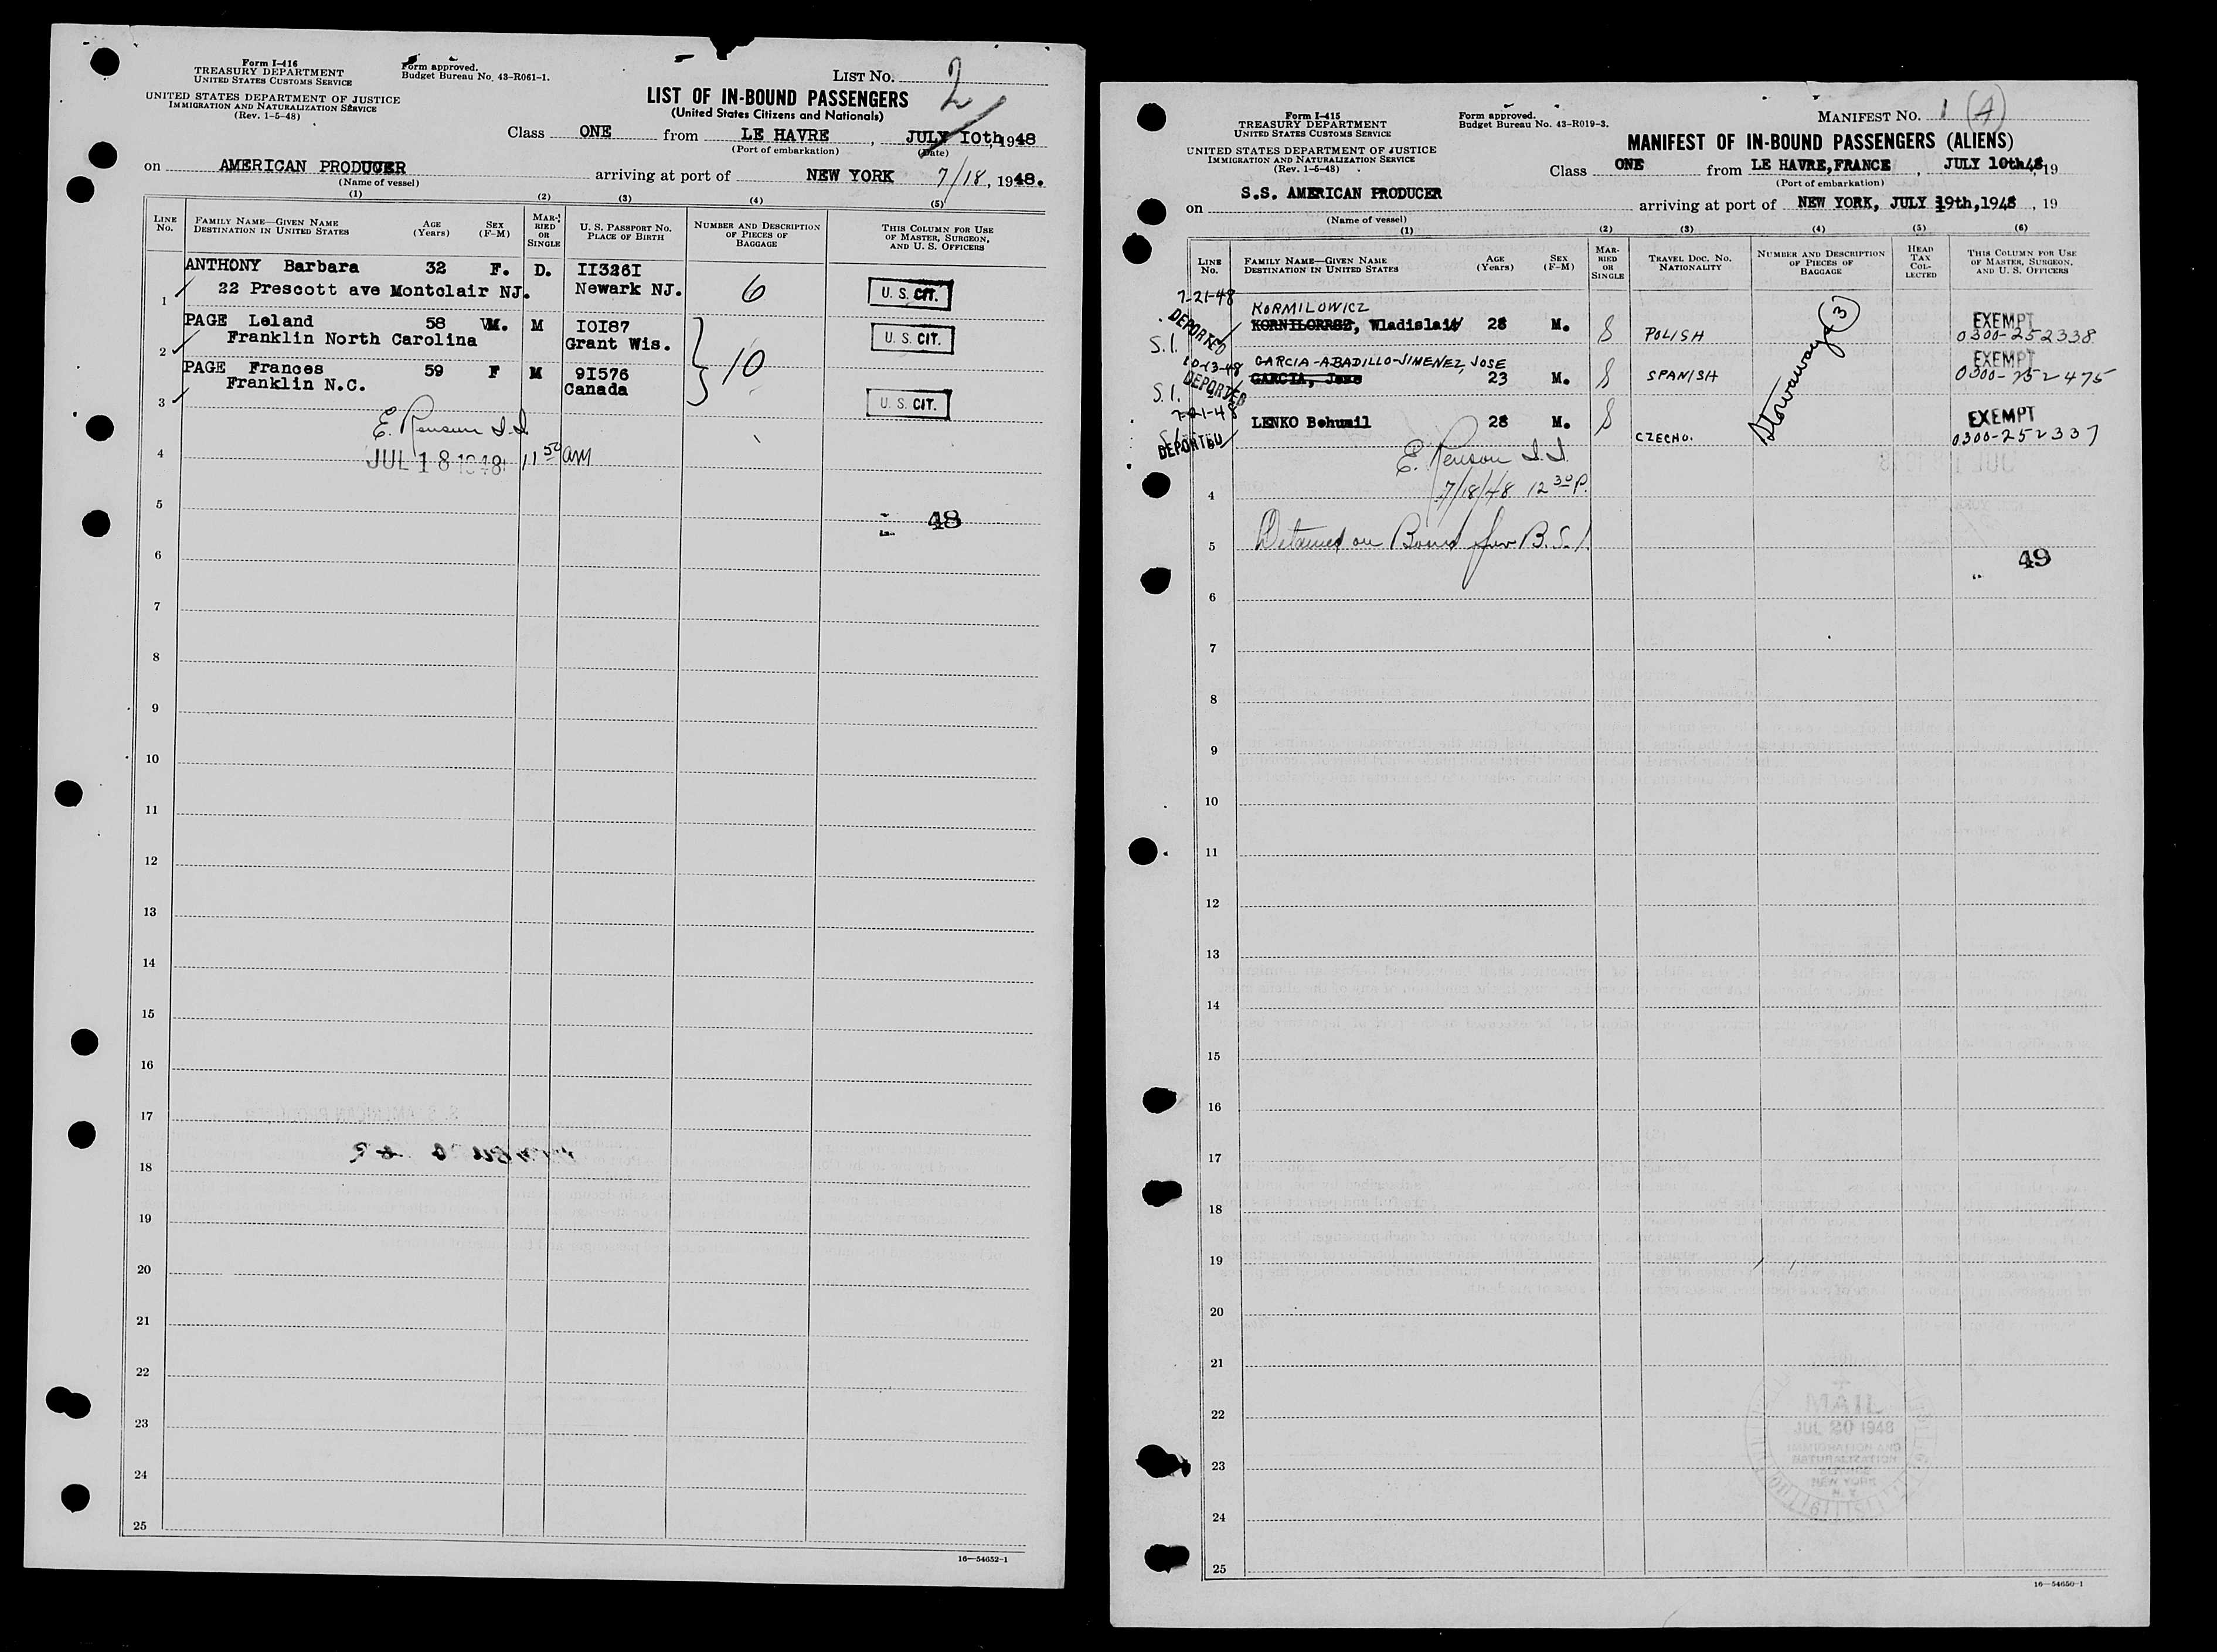 Form I-416
TREASURY DEPARTMENT
UNITED STATES CUSTOMS SERVICE
UNITED STATES DEPARTMENT OF JUSTICE
IMMIGRATION AND NATURALIZATION SERVICE
(Rev. 1-5-48)
Form approved.
Budget Bureau No. 43-R061-1.
LIST NO. 2
LIST OF IN-BOUND PASSENGERS
(United States Citizens and Nationals)
Class ONE from LE HAVRE, JULY 10th, 1948
(Port of embarkation) (Date)
on AMERICAN PRODUCER arriving at port of NEW YORK 7/18, 1948.
(Name of vessel)
(1) (2) (3) (4) (5)
LINE No. FAMILY NAME—GIVEN NAME DESTINATION IN UNITED STATES AGE (Years) SEX (F-M) MARRIED OR SINGLE U. S. PASSPORT NO. PLACE OF BIRTH NUMBER AND DESCRIPTION OF PIECES OF BAGGAGE THIS COLUMN FOR USE OF MASTER, SURGEON, AND U. S. OFFICERS
ANTHONY Barbara 32 F. D. II326I
1 22 Prescott ave Montclair NJ. Newark NJ. 6 U. S. CIT.
PAGE Leland 58 M. M IOI87
2 Franklin North Carolina Grant Wis. 10 U. S. CIT.
PAGE Frances 59 F M 9I576
3 Franklin N.C. Canada U. S. CIT.
E. Renson I.I.
4 JUL 18 1948 11 50 am
5 48
6
7
8
9
10
11
12
13
14
15
16
17
18
19
20
21
22
23
24
25
16—54652-1
Form I-415
TREASURY DEPARTMENT
UNITED STATES CUSTOMS SERVICE
UNITED STATES DEPARTMENT OF JUSTICE
IMMIGRATION AND NATURALIZATION SERVICE
(Rev. 1-5-48)
Form approved.
Budget Bureau No. 43-R019-3.
MANIFEST NO. 1 (A)
MANIFEST OF IN-BOUND PASSENGERS (ALIENS)
Class ONE from LE HAVRE, FRANCE, JULY 10th 48, 19
(Port of embarkation)
on S.S. AMERICAN PRODUCER arriving at port of NEW YORK, JULY 19th, 1948, 19
(Name of vessel)
(1) (2) (3) (4) (5) (6)
LINE No. FAMILY NAME—GIVEN NAME DESTINATION IN UNITED STATES AGE (Years) SEX (F-M) MARRIED OR SINGLE TRAVEL DOC. NO. NATIONALITY NUMBER AND DESCRIPTION OF PIECES OF BAGGAGE HEAD TAX COLLECTED THIS COLUMN FOR USE OF MASTER, SURGEON, AND U. S. OFFICERS
7-21-48 KORMILOWICZ
DEPORTED , Wladislaw 28 M. S POLISH EXEMPT
S.I. 0300-252338
10-13-48 GARCIA-ABADILLO-JIMENEZ, JOSE
DEPORTED GARCIA, Jose 23 M. S SPANISH EXEMPT
S.I. 0300-252475
7-21-48
LENKO Bohumil 28 M. S CZECHO. EXEMPT
S.I. DEPORTED 0300-252337
Stowaways (3)
E. Renson I.I.
4 7/18/48 12 30 P.
5 Detained on Board for B.S.I.
49
6
7
8
9
10
11
12
13
14
15
16
17
18
19
20
21
22
23
24
25
MAIL
JUL 20 1948
IMMIGRATION AND
NATURALIZATION
SERVICE
NEW YORK
N. Y.
16—54650-1